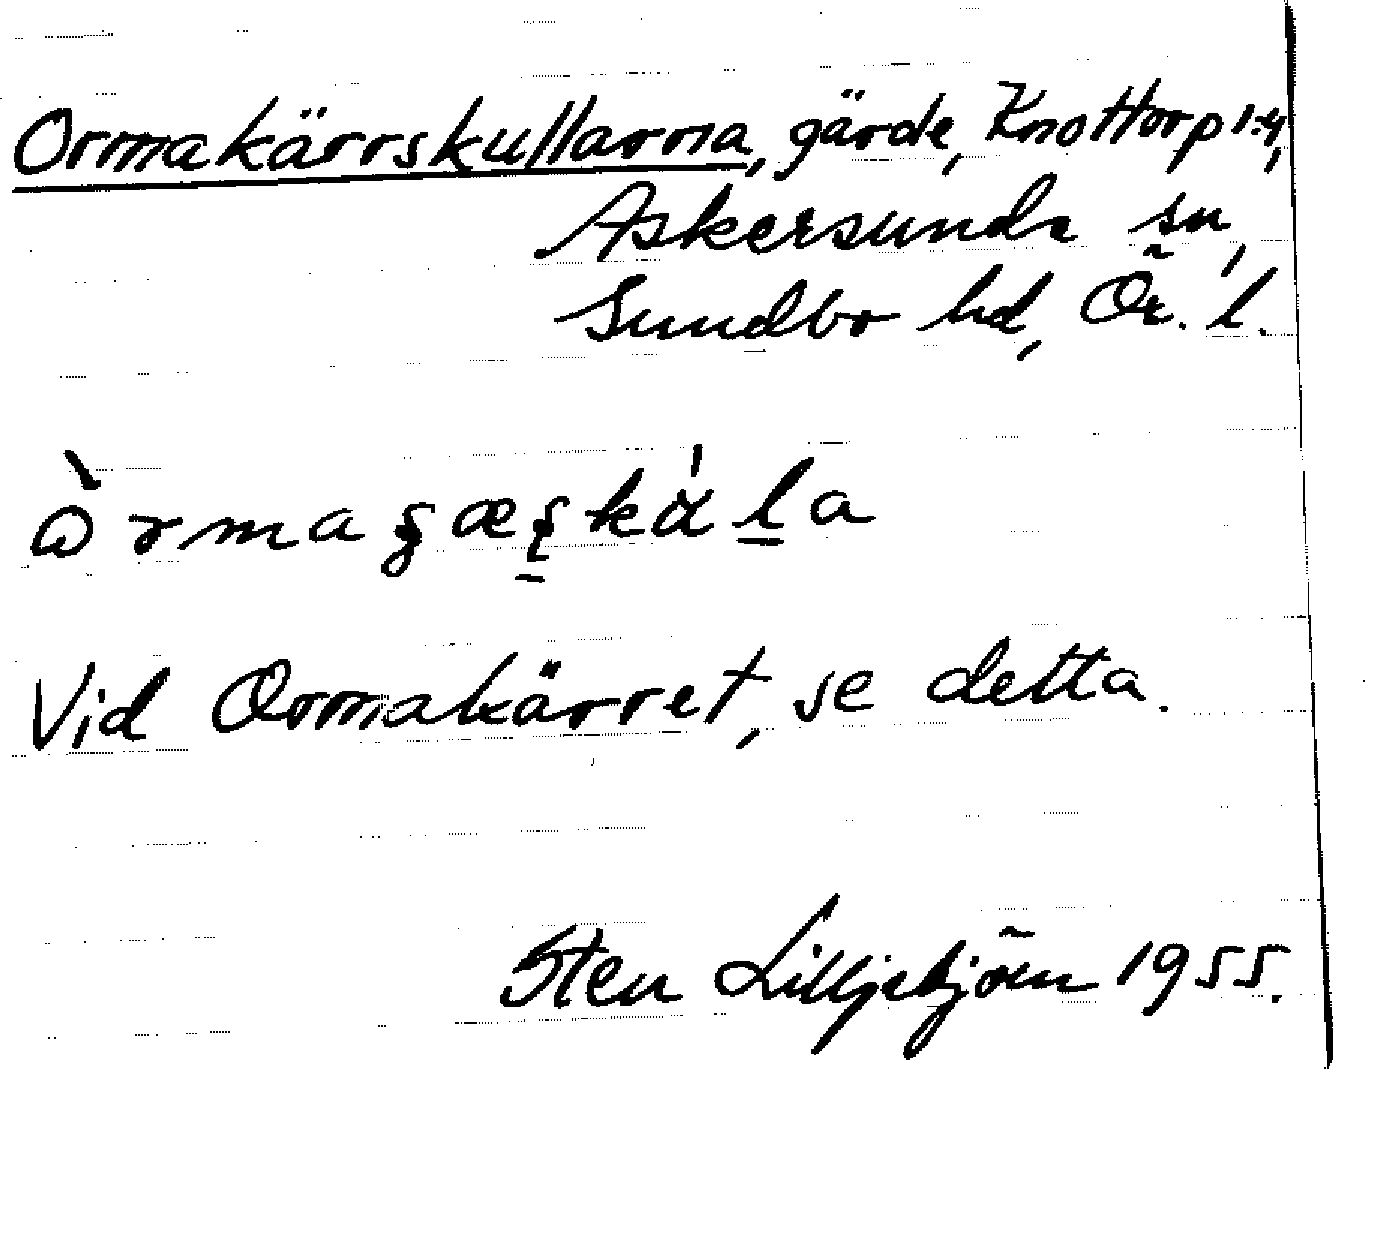 Ormakärrskullarna, gärde, Knottorp 1:4,
Askersunds sn,
Sundbo hd, Ör. l.
Vid Ormakärret, se detta.
Sten Lilljebjörn 1955.